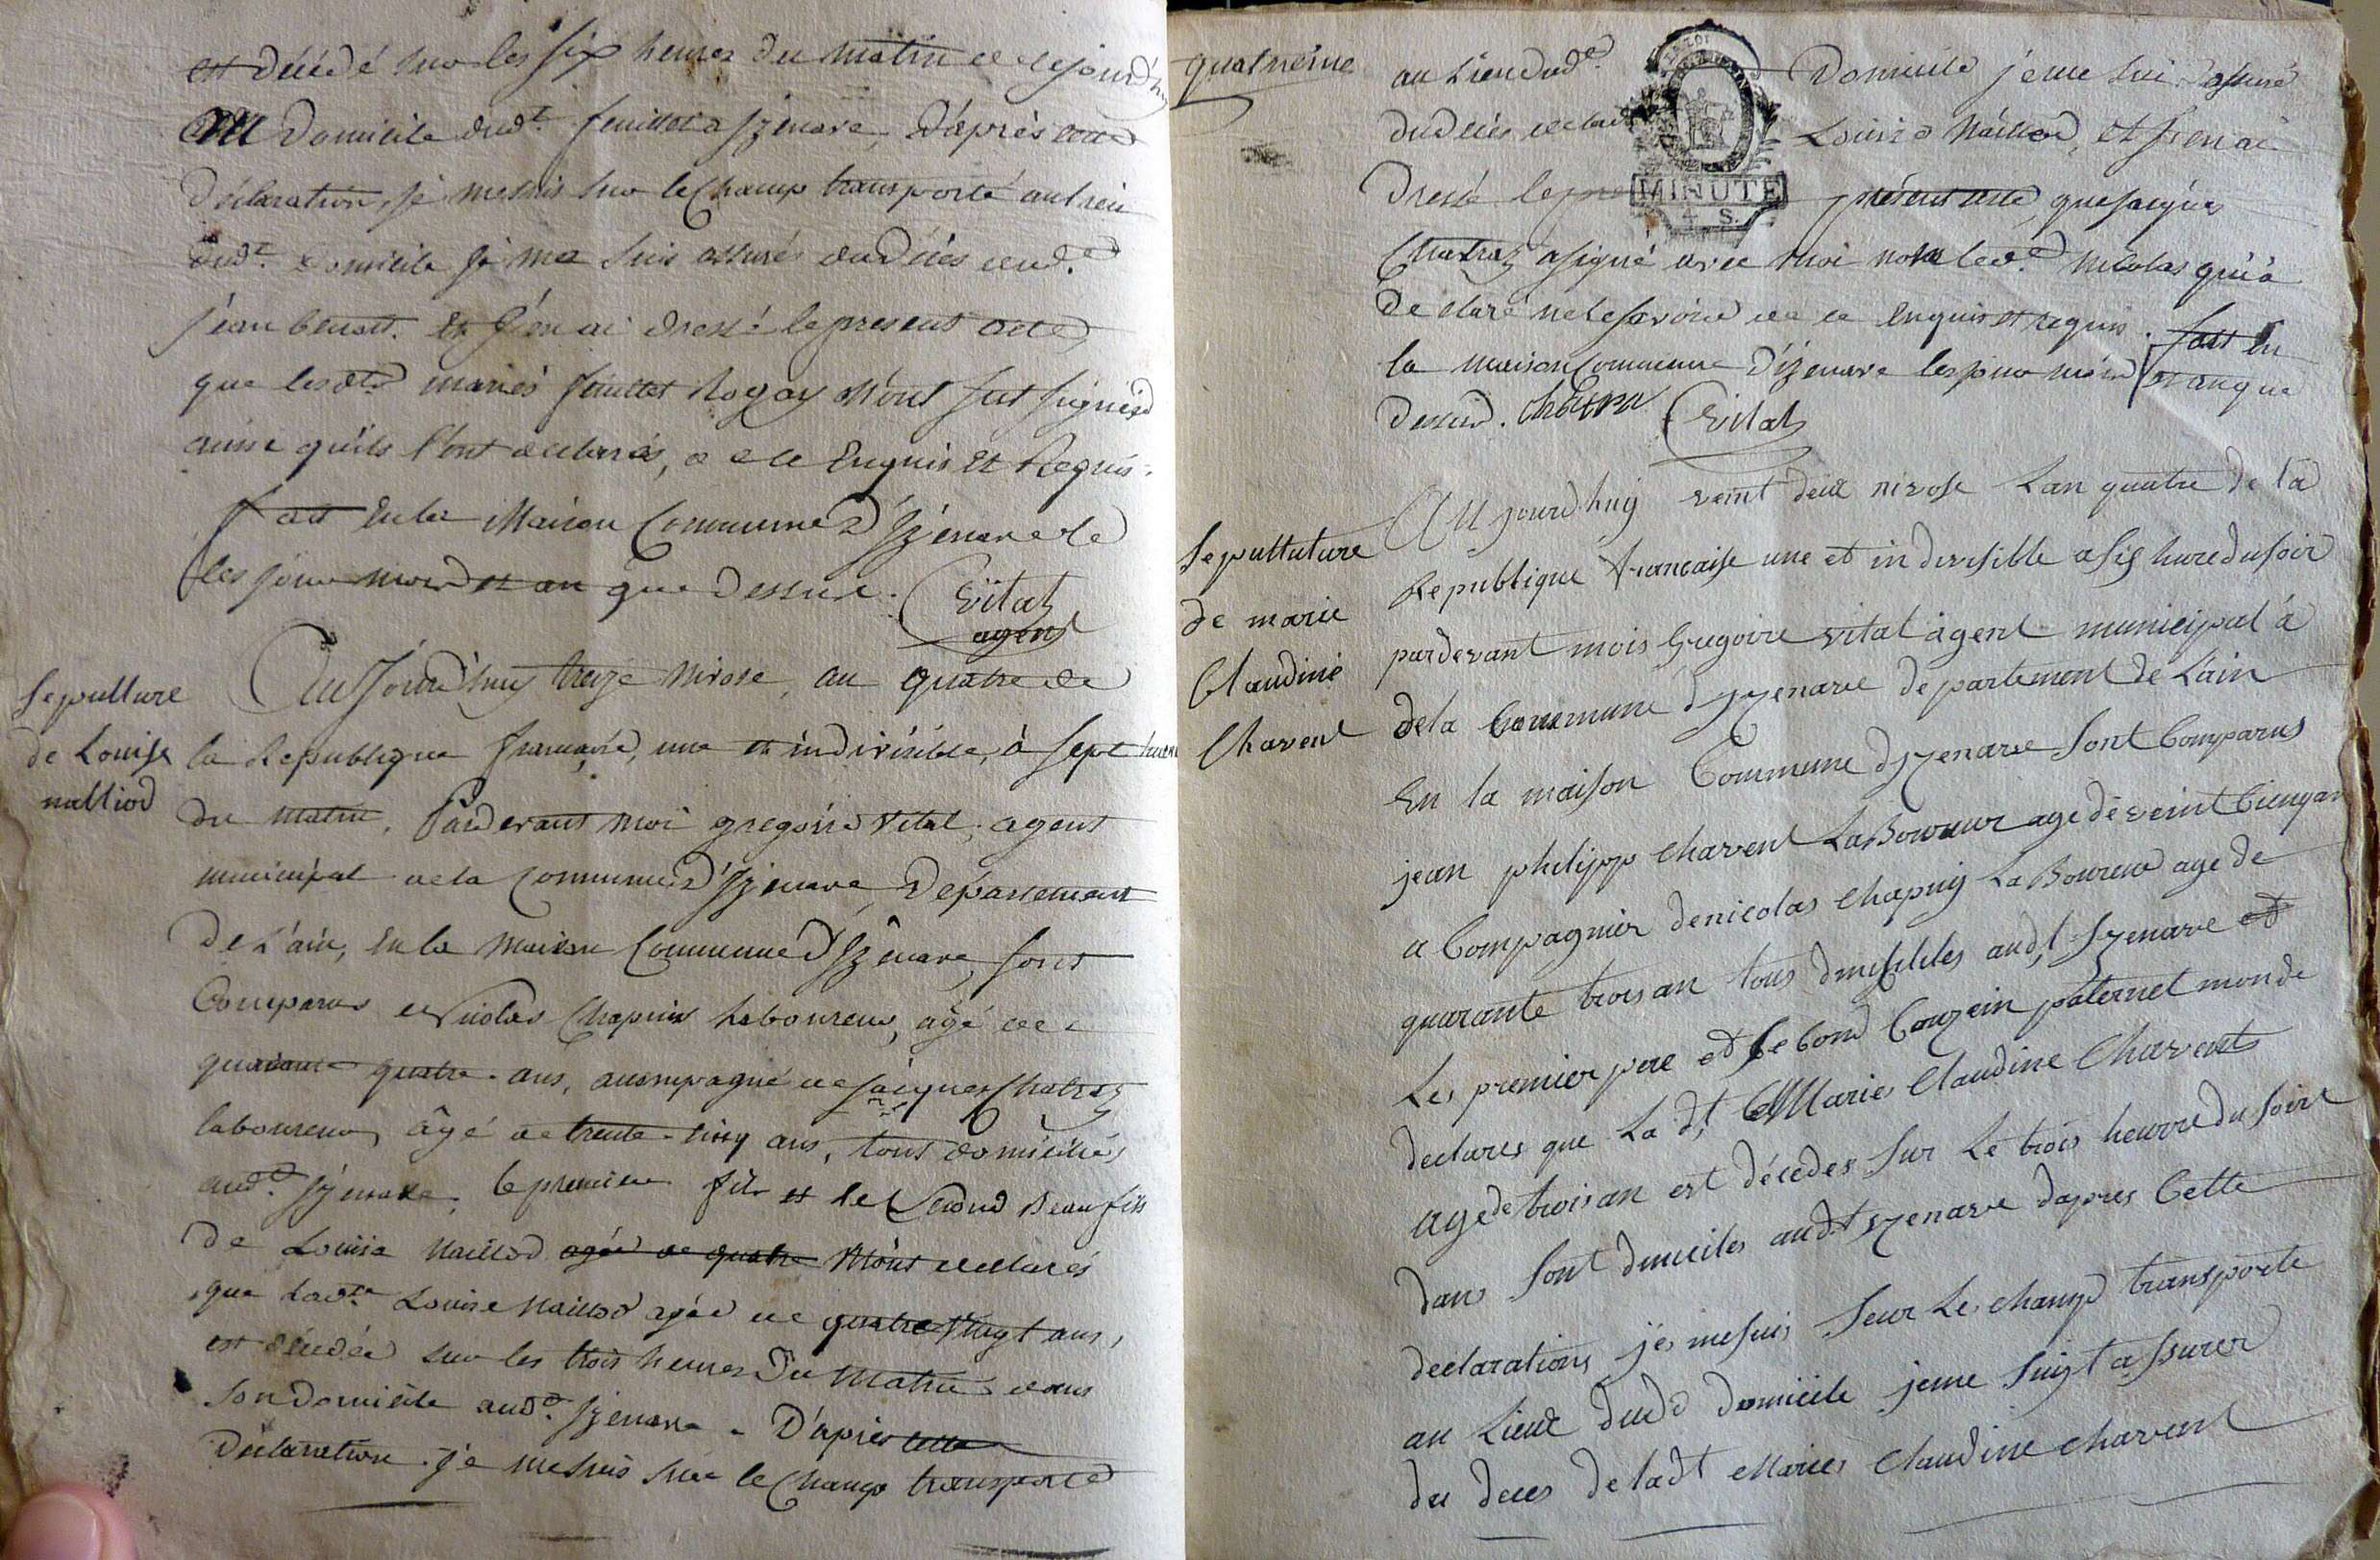 est décédé sur les six heures du matin de cejourd'huy
au Domicile dudt. feuillet a Izenave, D'après cette
Déclaration, je me suis sur le Champ transporté au lieu
dudt. Domicile je me suis assuré du Décès dud.
jean benoit. Et j'en ai dressé le present acte
que lesdts mariés feuillet Rogay n'ont sut signés
ainsi qu'ils l'ont declarés, de ce Enquis Et Requis.
fait En la Maison Commune d'Izenave le
les jour mois et an que Dessus. Vital
agent
Sepulture
de Louise
malliod
Aujourd'huy treize nivose, an quatre de
la Republique francaise, une et indivisible, à sept heures
du matin, Pardevant moi gregoire Vital agent
municipal de la Commune d'Izenave, Département
De L'ain, En la Maison Commune d'Izenave, sont
Comparus Nicolas Chapuis laboureur, agé de
quarante quatre ans, acompagné de jacques Chatraz
laboureur, âgé de trente-cinq ans, tous domiciliés
aud. Izenave, le premier fils et le second Beau fils
de Louise Maillod agée de quatre M'ont declarés
que ladte. Louise Maillod agée de quatre vingt ans,
est décédée sur les trois heures Du Matin dans
son domicile aud. Izenave. D'après cette
Déclaration je me suis sur le Champ transporté
quatrieme
au Lieu dud. Domicile je me suis assuré
du décès de lad. Louise Maillod, et j'en ai
dressé le pre present acte, que jacques
Chatraz a signé avec moi non led. Nicolas qui a
declaré ne le savoir de ce Enquis et requis. fait En
la maison Commune d'izenave les jour mois et an que
dessus. Chatra Vital
MINUTE
4 S.
Sepultuture
de marie
Claudine
Charvent
AUjourdhuy veint deux nivose Lan quatre de la
Republique francaise une et indivisible a sis hure du soir
pardevant mois Gregoire vital agent municipal à
de la Commune dyzenave departement de L'ain
En la maison Commune dyzenave sont Comparus
jean philipp Charvent LaBoureur age de veint cienq an
a Compagnier de nicolas Chapuy LaBoureur age de
quarante trois an tous dmisiliies audt Izenave et
Les premier pere et se Cond Couzein paternel mon de
declares que La dt Marie Claudine Charvent
age de trois an est décedes sur Le trois heurre du soire
dans sont dmiciles audt yzenave dapres Cette
declarations jes me suis seur Les champ transporte
au Lieux dudt domicile jeme suizt assurer
du deces de ladt Maries Claudine Charvent